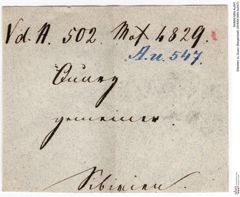 Vd. A. 502. Mof 4829.
A.N. 547.
Quarz
gemeiner.
Sibirien.